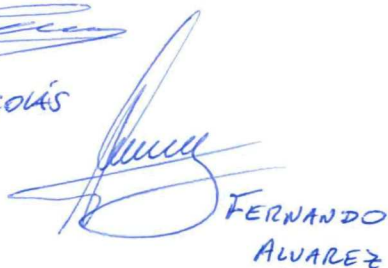 COLÁS
FERNANDO
ALVAREZ